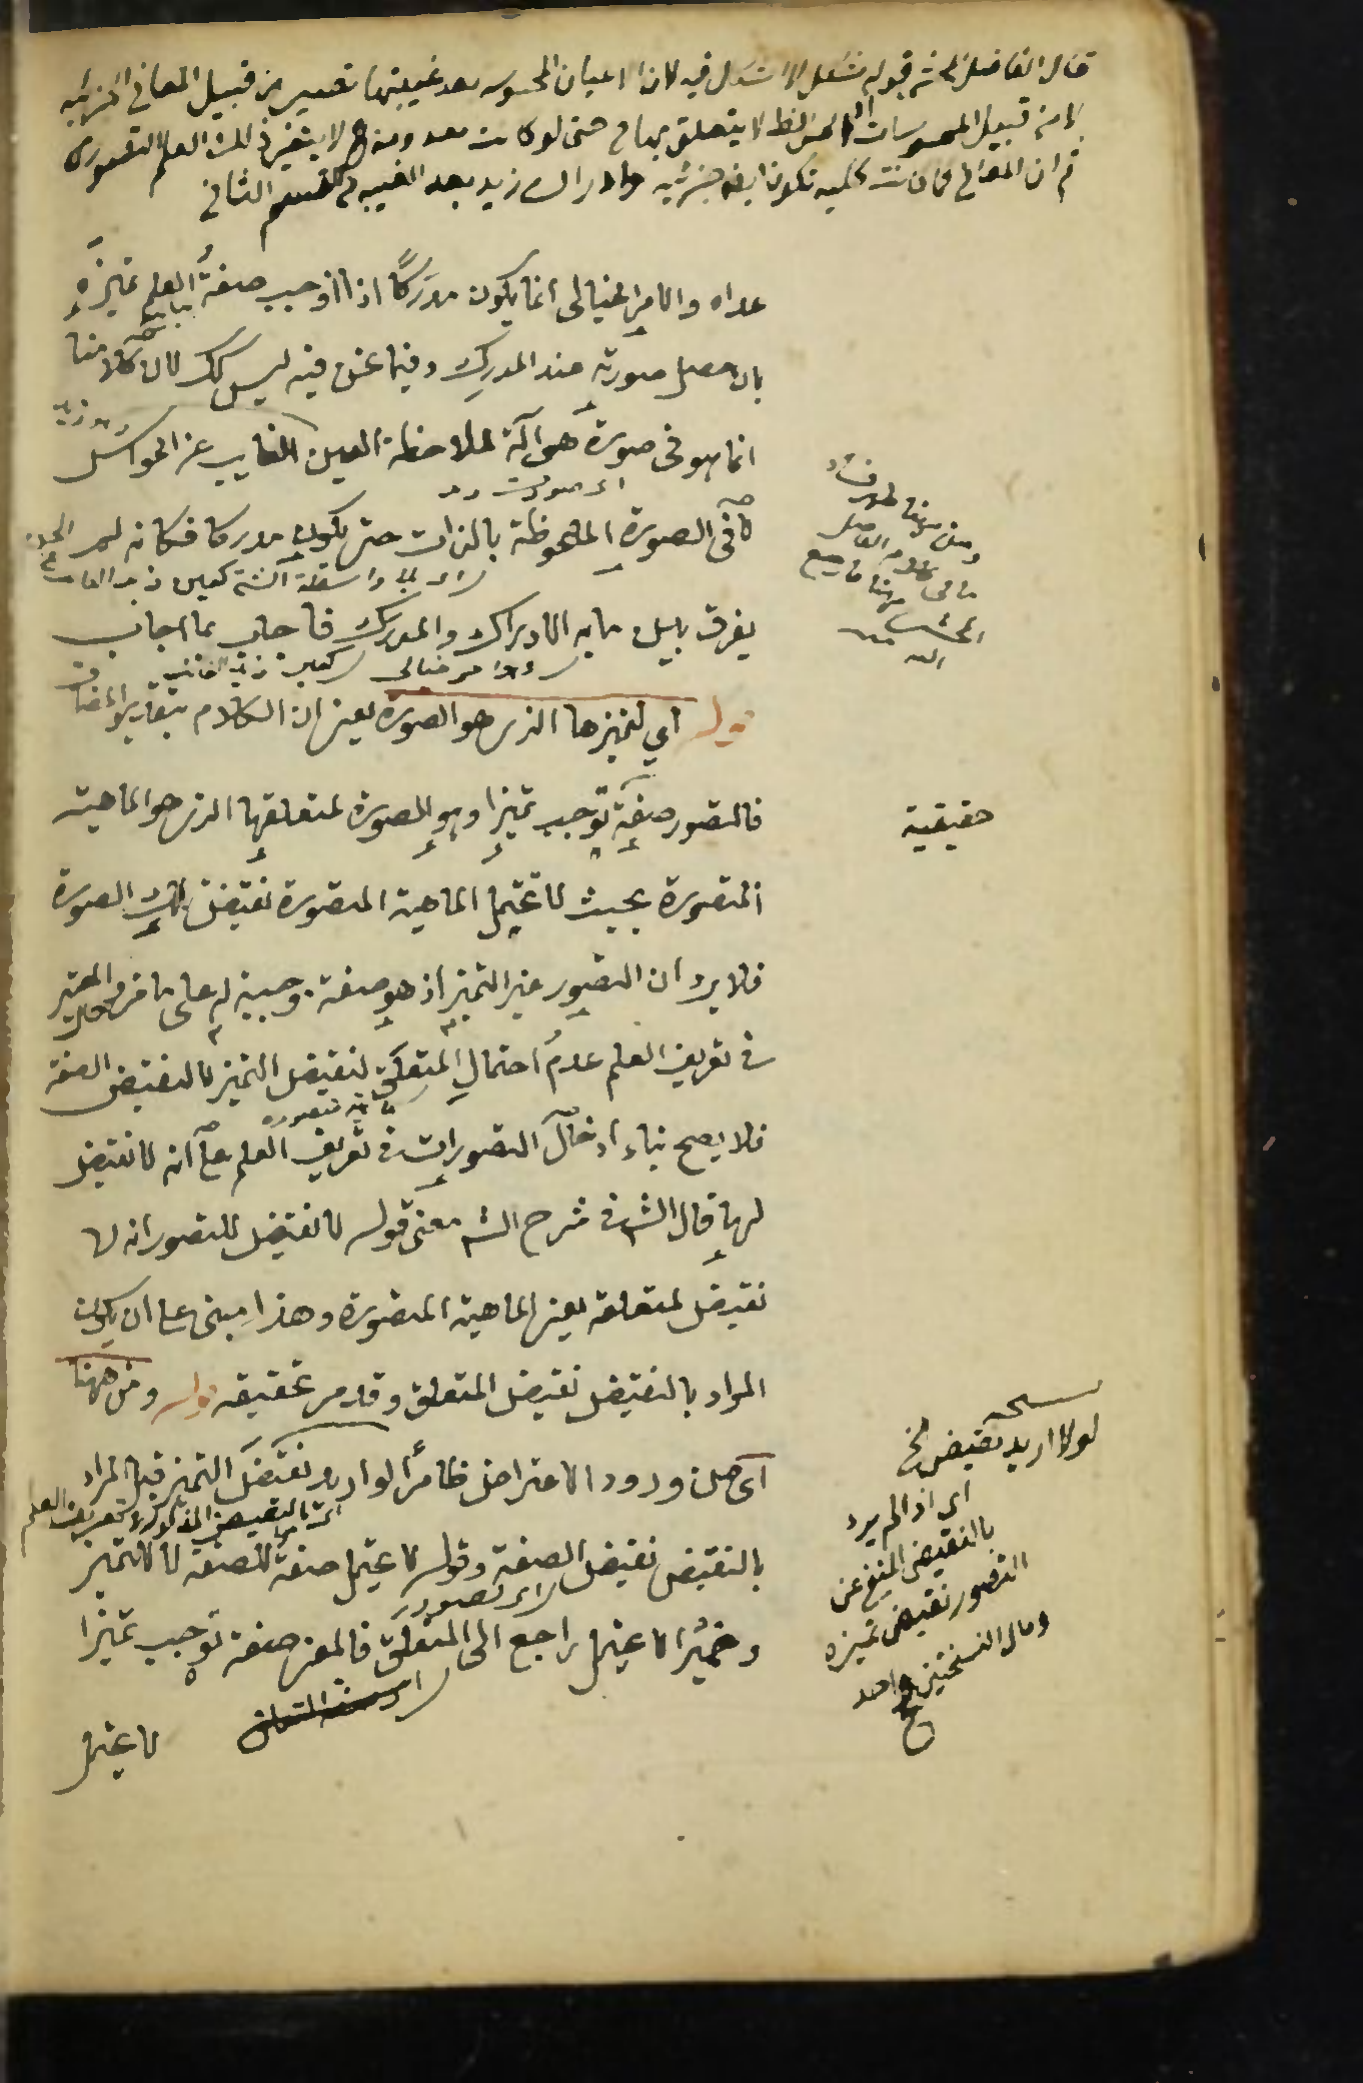 قال الفاضل المحشي قوله يشكل لا اشكال فيه لان الاعيان المحسوسه بعد غيبتها تصير من قبيل المعاني الجزئيه
لا من قبيل المحسوسات الحس الظ لا يتعلق بها حتى لو كانت معدومة لا يتغير ذلك العلم التصورى
ثم ان المعاني كما كانت كلية تكون ايضا جزئيه وادراك زيد بعد الغيبه من القسم الثاني
عداه والامر الخيالى انما يكون مدركا اذا اوجب صفة العلم تميزه
بان حصل صورته عند المدرك وفيما نحن فيه ليس كك لان كلامنا
انما هو فى صورة هى آلة لملاحظة العين الغايب عن الحواس
لا فى الصورة الملحوظة بالذات حتى يكون مدركا فكانه لم
يفرق بين ما به الادراك والمدرك فاجاب بما اجاب
قوله اي لتميزها الذى هو الصورة يعنى ان الكلام بتقدير المضاف
فالتصور صفة توجب تميزا وهو الصورة لمتعلقها الذى هو الماهية
المتصورة بحيث لا تحتمل الماهية المتصورة نقيض تلك الصورة
فلا يرد ان التصور غير التميز اذ هو صفة موجبة له على ما مر والمعتبر
فى تعريف العلم عدم احتمال المتعلق لنقيض التميز لا لنقيض الصفة
فلا يصح بناء ادخال التصورات فى تعريف العلم على انه لا نقيض
لها قال الش فى شرح الش معنى قوله لا نقيض للتصور انه لا
نقيض لمتعلقه يعنى الماهية المتصورة وهذا مبنى على ان يكون
المراد بالنقيض نقيض المتعلق وقد مر تحقيقه قوله ومن ههنا
اى من ورود الاعتراض ظاهرا لو اريد نقيض التميز قيل المراد
بالنقيض نقيض الصفة وقوله لا يحتمل صفة للصفة لا للتميز
وضمير لا يحتمل راجع الى المتعلق فالمعنى صفة توجب تميزا
لا يحتمل
حقيقية
نسخه
لولا اريد نقيض الخ
اى اذا لم يرد
بالنقيض المنفي عن
التصور نقيض تميزه
ومآل النسختين واحد